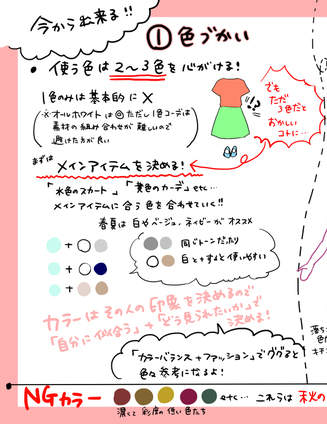 今から出来る!!
① 色づかい
• 使う色は2〜3色を心がける!
1色のみは基本的に×
(※オールホワイトは◎ ただし1色コーデは
素材の組み合わせが難しいので
避けた方が良い)
!?
でも
ただ
3色だと
おかしい
コトに…
まずは
メインアイテムを決める!
「水色のスカート」「黄色のカーデ」etc…
メインアイテムに合う色を合わせていく!!
春夏は白やベージュ、ネイビーがオススメ
+
同じトーンだったり
+
白とすると使いやすい
+
カラーはその人の印象を決めるので
「自分に似合う」+「どう見られたいか」で
決める!
「カラーバランス + ファッション」でググると
色々参考になるよ!
NGカラー
etc… これらは秋の
濃くて彩度の低い色たち